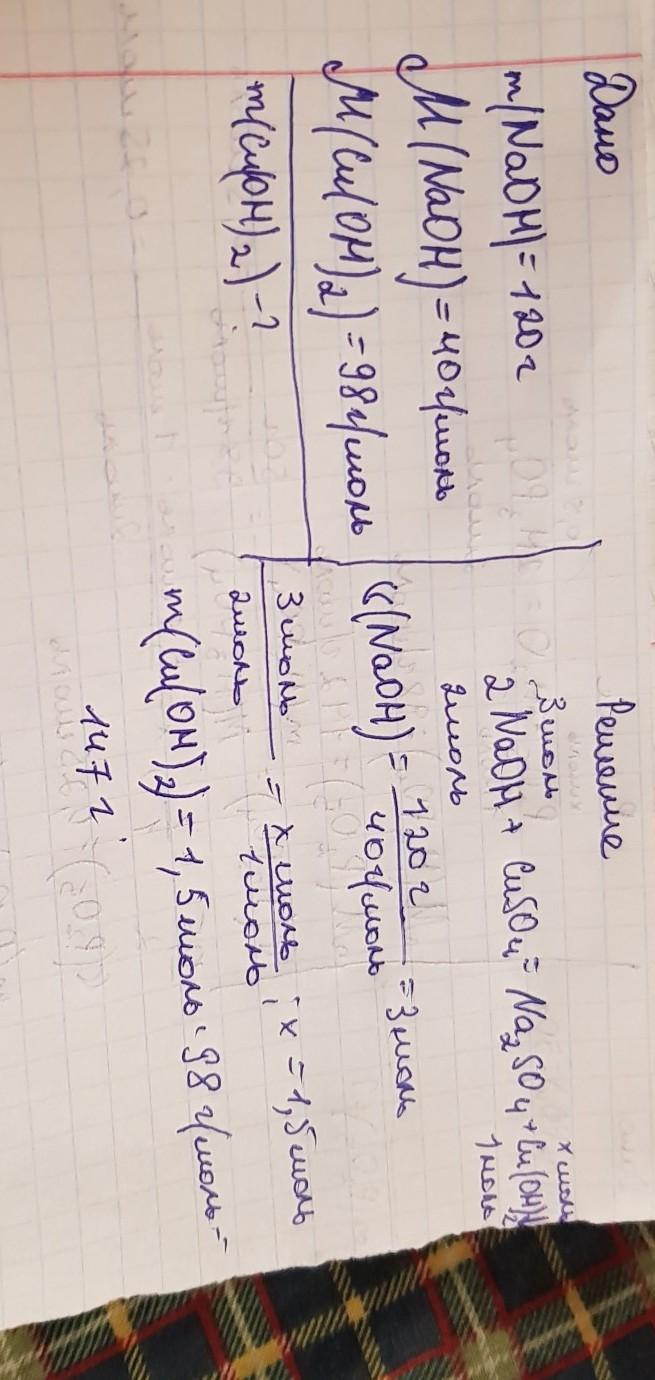 Дано
m(NaOH) = 120 г
M(NaOH) = 40 г/моль
M(Cu(OH)₂) = 98 г/моль
m(Cu(OH)₂) - ?
Решение
3 моль х моль
2 NaOH + CuSO₄ = Na₂SO₄ + Cu(OH)₂
2 моль 1 моль
(NaOH) = 120 г / 40 г/моль = 3 моль
3 моль / 2 моль = х моль / 1 моль ; х = 1,5 моль
m(Cu(OH)₂) = 1,5 моль · 98 г/моль =
147 г.